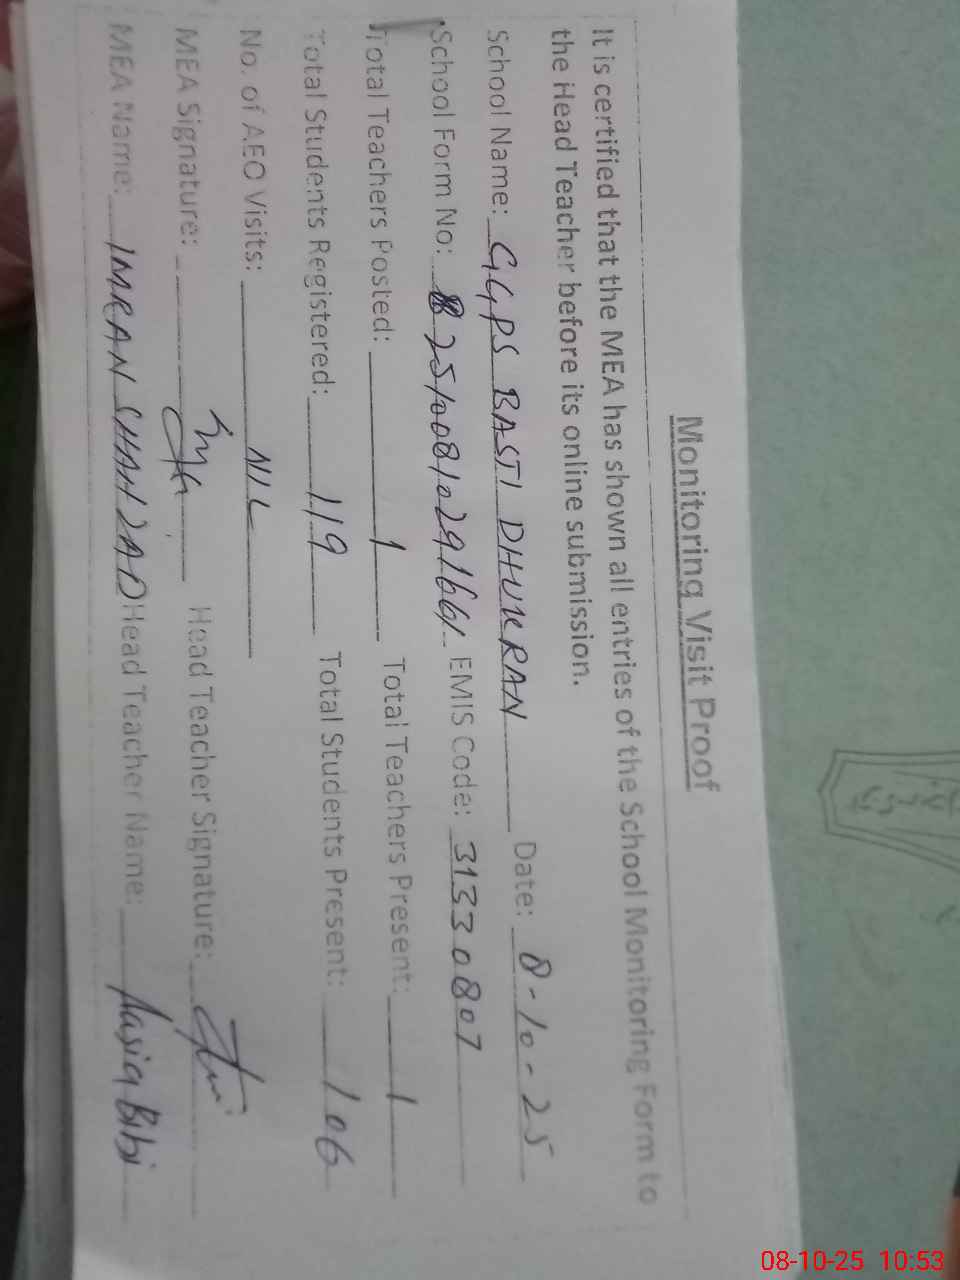 Monitoring Visit Proof
It is certified that the MEA has shown all entries of the School Monitoring Form to
the Head Teacher before its online submission.
School Name: GGPS BASTI DHUKRAN Date: 8-10-25
School Form No: EMIS Code: 31330807
Total Teachers Posted: 1 Total Teachers Present: 1
Total Students Registered: 119 Total Students Present: 106
No. of AEO Visits: NIL
MEA Signature: Head Teacher Signature:
MEA Name: IMRAN SHAHZAD Head Teacher Name: Aasia Bibi
08-10-25 10:53